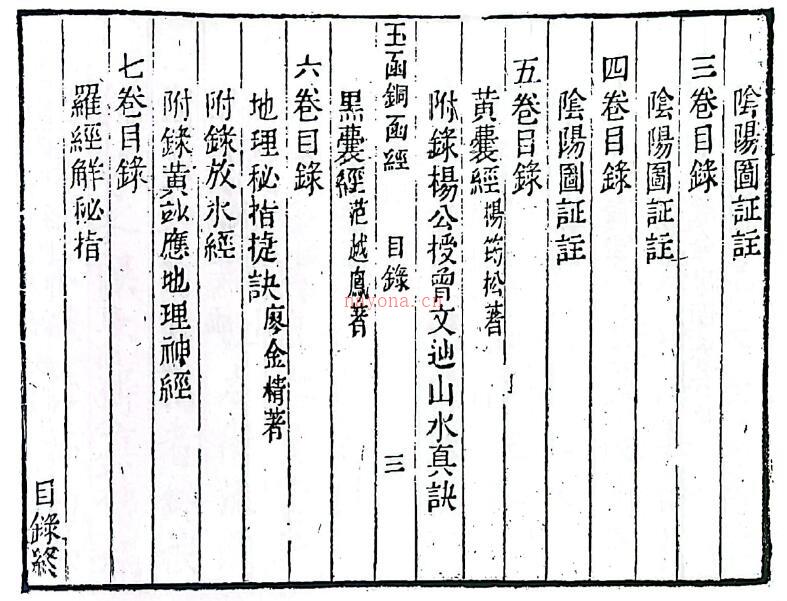 陰陽圖証註
三卷目錄
陰陽圖証註
四卷目錄
陰陽圖証註
五卷目錄
黃囊經楊筠松著
附錄楊公授曾文辿山水真訣
玉函銅函經 目錄 三
黑囊經范越鳳著
六卷目錄
地理秘指捷訣廖金精著
附錄放水經
附錄黃玅應地理神經
七卷目錄
羅經解秘指
目錄終
nayona.cn